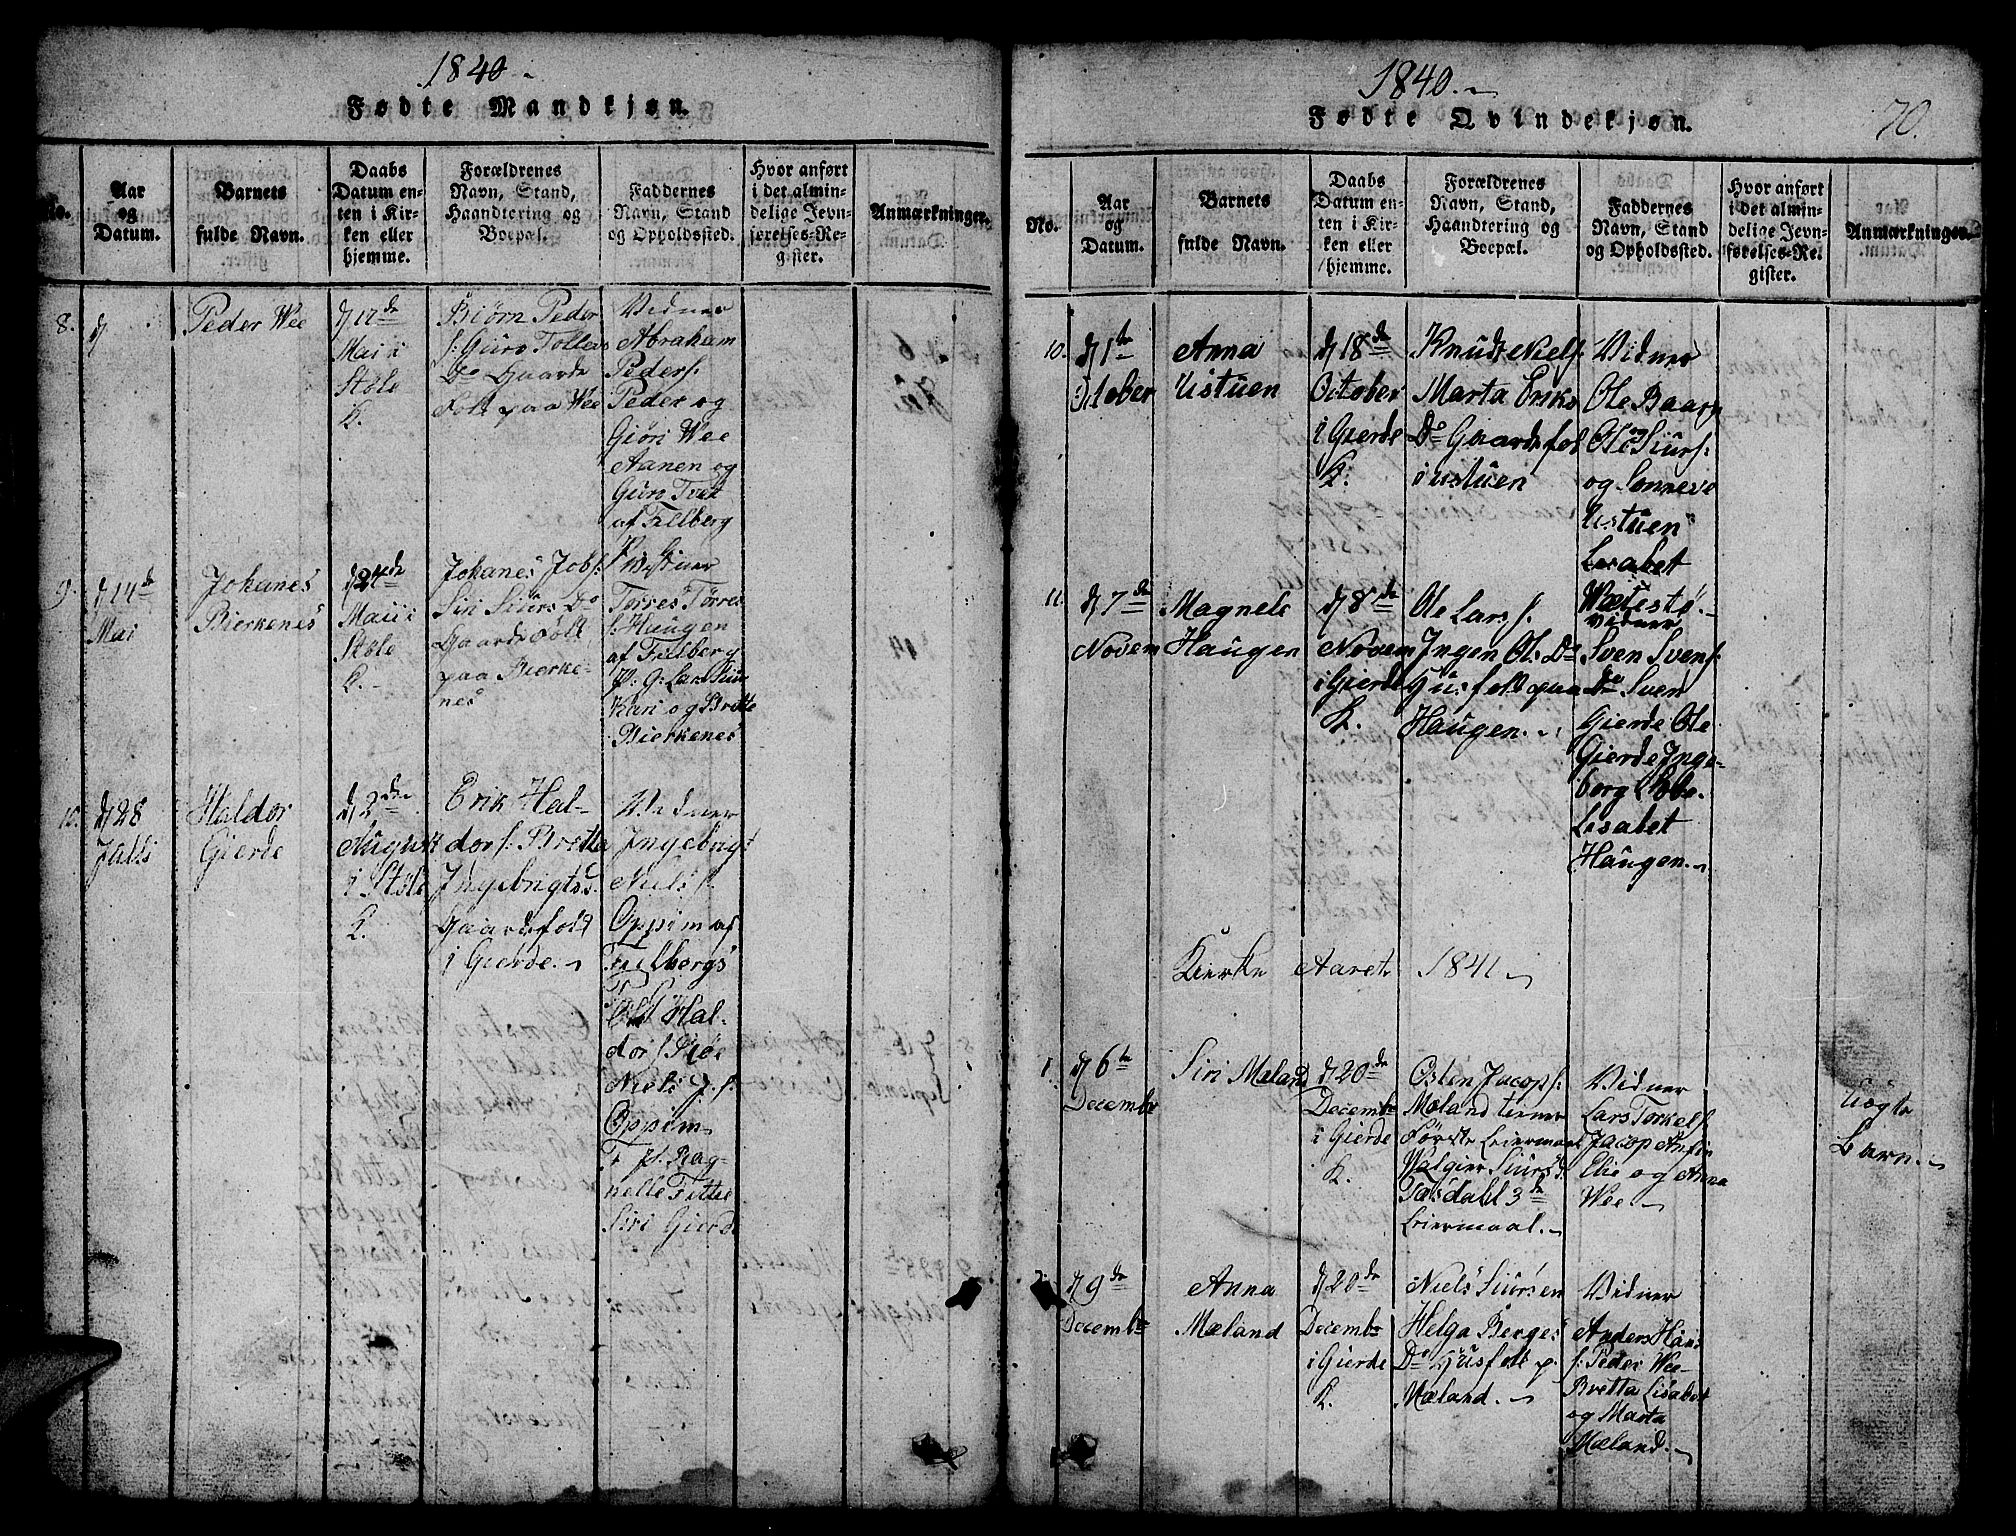 1840.
Fødte Mandkjøn.
No.
Aar
og
Datum.
Barnets
fulde Navn.
Daabs
Datum en-
ten i Kir-
ken eller
hjemme.
Forældrenes
Navn, Stand,
Haandtering og
Boepæl.
Faddernes
Navn, Stand
og Opholdssted.
Hvor anført
i det almin-
delige Jevn-
førelses-Re-
gister.
Anmærkninger.
8.
Peder Wee
Maii i
Støle
K.
Biørn Peder
s: Guro Tollevs
Do Gaards
Folk paa Wee
Vidner
Abraham
Peders:
Peder og
Giøri Wee
Aanen og
Guro Tvet
9.
d 14de
Mai
Johanes
Bierkenes
d 24de
Maii i
Støle
K.
Johanes Jobs:
Siri Siurs Do
Gaards Folk
paa Bierke-
nes
Torres Torres
s: Haugen
Kari og Britte
Bierkenes
10.
d 28
Julli
Haldor
Gierde
d 2den
August
i Støle
K.
Erik Hal-
dors: Britta
Ingebrigts d.
Gaardsfolk
i Gierde.
Vidner
Ingebrigt
Niels s:
Oppim af
Ole Hal-
dors
Niels J. s:
Oppim
Rag-
nelle
Siri Gierde
1840.
Fødte Qvindekjøn.
70.
No.
Aar
og
Datum.
Barnets
fulde Navn.
Daabs
Datum en-
ten i Kir-
ken eller
hjemme.
Forældrenes
Navn, Stand,
Haandtering og
Boepæl.
Faddernes
Navn, Stand
og Opholdssted.
Hvor anført
i det almin-
delige Jevn-
førelses-Re-
gister.
Anmærkninger.
10.
d 1te
October
Anna
Ustuen
d 18de
October
i Gierde
K.
Knudt Niels:
Marta Eriks
Do Gaardsfol
i ustuen
Vidner
Ole Baarn
Ole Siurs:
og Sonneve
Ustuen
Lisabet
11.
d 7de
Novem
Magnele
Haugen
d 8de
Novem
i Gierde
K.
Ole Lars s:
Ingen Ols Do
Husfolk paa
Haugen.
Vidner
Sven Svens:
Do Sven
Gierde Ole
Gierde Inge-
borg
Lisabet
Haugen.
Kierke Aaret 1841
1.
d 6te
Decembr
Siri Mæland
d 20de
Decembr
i Gierde
K.
Osten Jacops:
Mæland
Første Leiermaal
Walgier Siurs d.
3de
Leiermaal.
Vidner
Lars Torkels:
Jacop
Elie og Anna
Wee
Uægte
Barn.
2.
d 9de
Decembr
Anna
Mæland
d 20de
Decembr
i Gierde
K.
Niels Siursen
Helga Berges
Do Husfolk p.
Mæland.
Vidner
Anders Hans
s: Peder Wee
Bretta Lisabet
og Marta
Mæland.